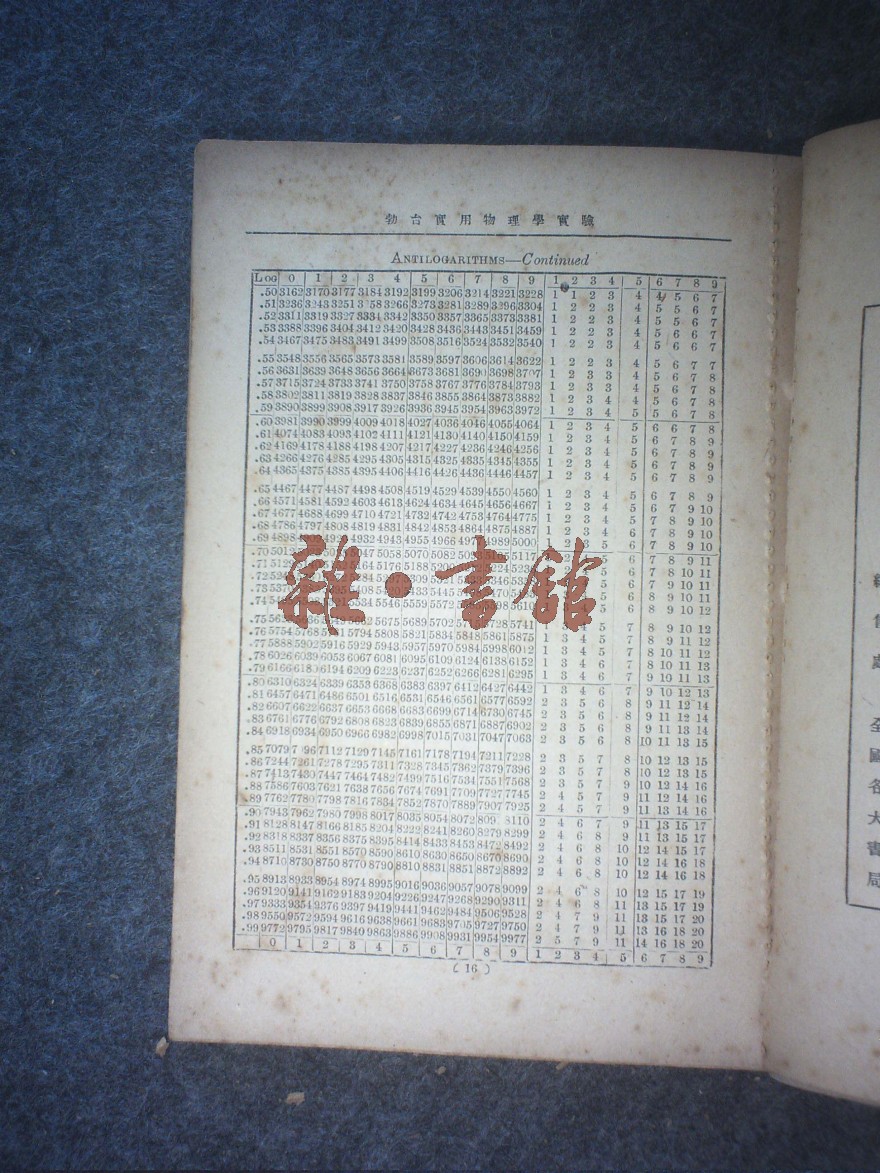 勃台實用物理學實驗
ANTILOGARITHMS—Continued
Log 0 1 2 3 4 5 6 7 8 9 1 2 3 4 5 6 7 8 9
.50 3162 3170 3177 3184 3192 3199 3206 3214 3221 3228 1 1 2 3 4 4 5 6 7
.51 3236 3243 3251 3258 3266 3273 3281 3289 3296 3304 1 2 2 3 4 5 5 6 7
.52 3311 3319 3327 3334 3342 3350 3357 3365 3373 3381 1 2 2 3 4 5 5 6 7
.53 3388 3396 3404 3412 3420 3428 3436 3443 3451 3459 1 2 2 3 4 5 6 6 7
.54 3467 3475 3483 3491 3499 3508 3516 3524 3532 3540 1 2 2 3 4 5 6 6 7
.55 3548 3556 3565 3573 3581 3589 3597 3606 3614 3622 1 2 2 3 4 5 6 7 7
.56 3631 3639 3648 3656 3664 3673 3681 3690 3698 3707 1 2 3 3 4 5 6 7 8
.57 3715 3724 3733 3741 3750 3758 3767 3776 3784 3793 1 2 3 3 4 5 6 7 8
.58 3802 3811 3819 3828 3837 3846 3855 3864 3873 3882 1 2 3 4 4 5 6 7 8
.59 3890 3899 3908 3917 3926 3936 3945 3954 3963 3972 1 2 3 4 5 5 6 7 8
.60 3981 3990 3999 4009 4018 4027 4036 4046 4055 4064 1 2 3 4 5 6 6 7 8
.61 4074 4083 4093 4102 4111 4121 4130 4140 4150 4159 1 2 3 4 5 6 7 8 9
.62 4169 4178 4188 4198 4207 4217 4227 4236 4246 4256 1 2 3 4 5 6 7 8 9
.63 4266 4276 4285 4295 4305 4315 4325 4335 4345 4355 1 2 3 4 5 6 7 8 9
.64 4365 4375 4385 4395 4406 4416 4426 4436 4446 4457 1 2 3 4 5 6 7 8 9
.65 4467 4477 4487 4498 4508 4519 4529 4539 4550 4560 1 2 3 4 5 6 7 8 9
.66 4571 4581 4592 4603 4613 4624 4634 4645 4656 4667 1 2 3 4 5 6 7 9 10
.67 4677 4688 4699 4710 4721 4732 4742 4753 4764 4775 1 2 3 4 5 7 8 9 10
.68 4786 4797 4808 4819 4831 4842 4853 4864 4875 4887 1 2 3 4 6 7 8 9 10
.69 4898 4932 4943 4955 4966 4977 4989 5000 1 2 3 5 6 7 8 9 10
.70 5012 5047 5058 5070 5082 5117 5 6 7 8 9 11
.71 5164 5176 5188 6 7 8 10 11
.72 6 7 9 10 11
.73 6 8 9 10 11
.74 5534 5546 5559 5572 5610 6 8 9 10 12
.75 5675 5689 5702 5741 7 8 9 10 12
.76 5754 5768 5794 5808 5821 5834 5848 5861 5875 1 3 4 5 7 8 9 11 12
.77 5888 5902 5916 5929 5943 5957 5970 5984 5998 6012 1 3 4 5 7 8 10 11 12
.78 6026 6039 6053 6067 6081 6095 6109 6124 6138 6152 1 3 4 6 7 8 10 11 13
.79 6166 6180 6194 6209 6223 6237 6252 6266 6281 6295 1 3 4 6 7 9 10 11 13
.80 6310 6324 6339 6353 6368 6383 6397 6412 6427 6442 1 3 4 6 7 9 10 12 13
.81 6457 6471 6486 6501 6516 6531 6546 6561 6577 6592 2 3 5 6 8 9 11 12 14
.82 6607 6622 6637 6653 6668 6683 6699 6714 6730 6745 2 3 5 6 8 9 11 12 14
.83 6761 6776 6792 6808 6823 6839 6855 6871 6887 6902 2 3 5 6 8 9 11 13 14
.84 6918 6934 6950 6966 6982 6998 7015 7031 7047 7063 2 3 5 6 8 10 11 13 15
.85 7079 7096 7112 7129 7145 7161 7178 7194 7211 7228 2 3 5 7 8 10 12 13 15
.86 7244 7261 7278 7295 7311 7328 7345 7362 7379 7396 2 3 5 7 8 10 12 13 15
.87 7413 7430 7447 7464 7482 7499 7516 7534 7551 7568 2 3 5 7 9 10 12 14 16
.88 7586 7603 7621 7638 7656 7674 7691 7709 7727 7745 2 4 5 7 9 11 12 14 16
.89 7762 7780 7798 7816 7834 7852 7870 7889 7907 7925 2 4 5 7 9 11 13 14 16
.90 7943 7962 7980 7998 8017 8035 8054 8072 809 8110 2 4 6 7 9 11 13 15 17
.91 8128 8147 8166 8185 8204 8222 8241 8260 8279 8299 2 4 6 8 9 11 13 15 17
.92 8318 8337 8356 8375 8395 8414 8433 8453 8472 8492 2 4 6 8 10 12 14 15 17
.93 8511 8531 8551 8570 8590 8610 8630 8650 8670 8690 2 4 6 8 10 12 14 16 18
.94 8710 8730 8750 8770 8790 8810 8831 8851 8872 8892 2 4 6 8 10 12 14 16 18
.95 8913 8933 8954 8974 8995 9016 9036 9057 9078 9099 2 4 6 8 10 12 15 17 19
.96 9120 9141 9162 9183 9204 9226 9247 9268 9290 9311 2 4 6 8 11 13 15 17 19
.97 9333 9354 9376 9397 9419 9441 9462 9484 9506 9528 2 4 7 9 11 13 15 17 20
.98 9550 9572 9594 9616 9638 9661 9683 9705 9727 9750 2 4 7 9 11 13 16 18 20
.99 9772 9795 9817 9840 9863 9886 9908 9931 9954 9977 2 5 7 9 11 14 16 18 20
0 1 2 3 4 5 6 7 8 9 1 2 3 4 5 6 7 8 9
(16)
雜·書館
全國各大書局